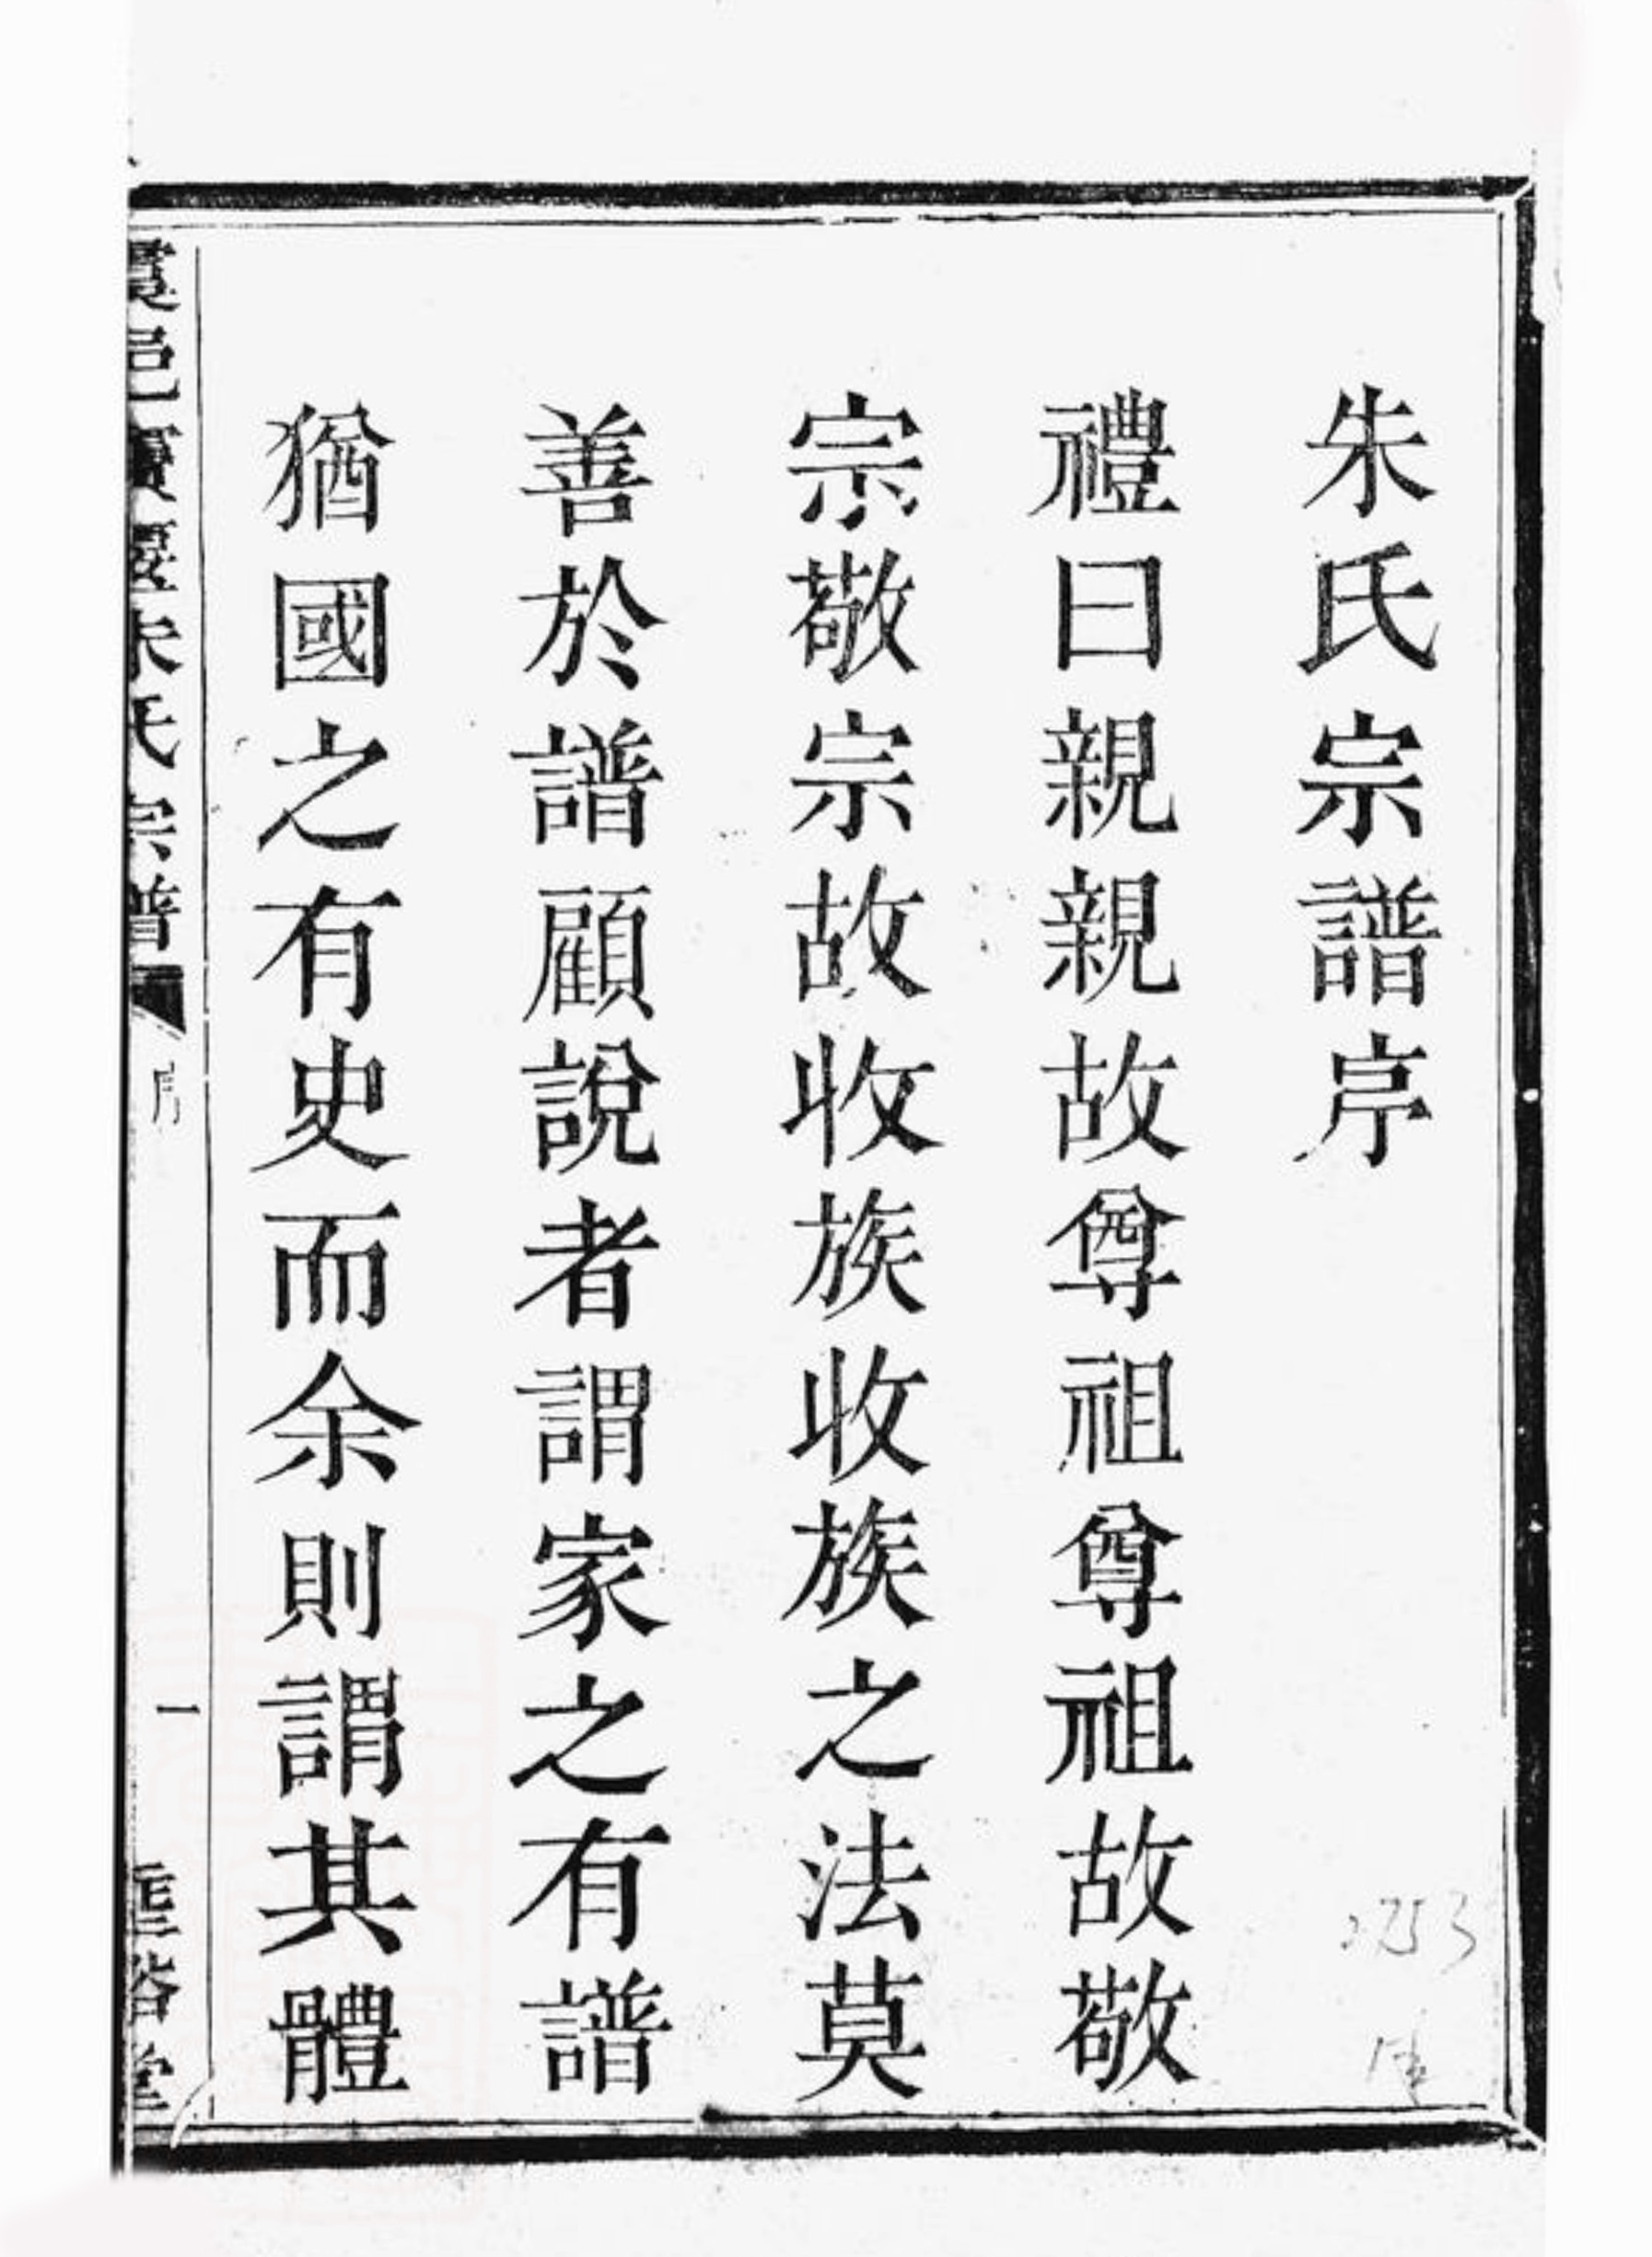 朱氏宗譜序
禮曰親親故尊祖尊祖故敬
宗敬宗故收族收族之法莫
善於譜顧說者謂家之有譜
猶國之有史而余則謂其體
虞邑 朱氏宗譜
序
一
堂
2753